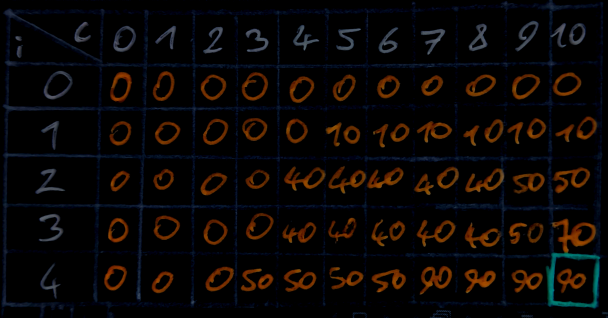 i c 0 1 2 3 4 5 6 7 8 9 10
0 0 0 0 0 0 0 0 0 0 0 0
1 0 0 0 0 0 10 10 10 10 10 10
2 0 0 0 0 40 40 40 40 40 50 50
3 0 0 0 0 40 40 40 40 40 50 70
4 0 0 0 50 50 50 50 90 90 90 90